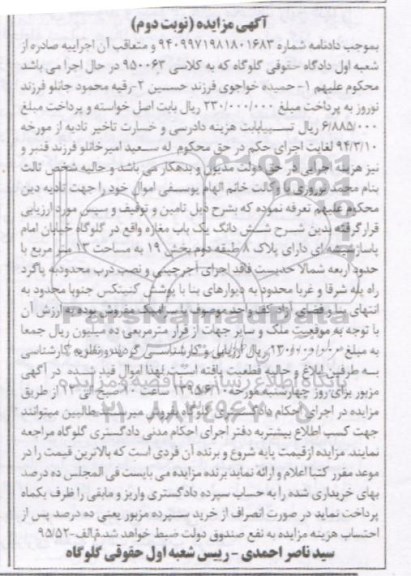 آگهی مزایده (نوبت دوم)
بموجب دادنامه شماره ۹۴۰۹۹۷۱۹۸۱۸۰۱۶۸۳ و متعاقب آن اجراییه صادره از
شعبه اول دادگاه حقوقی گلوگاه که به کلاسی ۹۵۰۰۶۳ در حال اجرا می باشد
محکوم علیهم ۱- حمیده خواجوی فرزند حسین ۲-رقیه محمود جانلو فرزند
نوروز به پرداخت مبلغ ۲۳۰/۰۰۰/۰۰۰ ریال بابت اصل خواسته و پرداخت مبلغ
۶/۸۸۵/۰۰۰ ریال نسبیبابت هزینه دادرسی و خسارت تاخیر تادیه از مورخه
۹۴/۳/۱۰ لغایت اجرای حکم در حق محکوم له سعید امیرخانلو فرزند قنبر و
نیز هزینه اجرایی در حق دولت مدیون و بدهکار می باشد وحالیه شخص ثالث
بنام محمد نوروزی با وکالت خانم الهام یوسفی اموال خود را جهت تادیه دین
محکوم علیهم تعرفه نموده که بشرح ذیل تامین و توقیف و سپس مورد ارزیابی
قرارگرفته بدین شرح شش دانگ یک باب مغازه واقع در گلوگاه خیابان امام
پاساژ دارای پلاک ۸ طبقه دوم بخش ۱۹ به مساحت ۱۳ متر مربع با
حدود اربعه شمالا حدیست فاقد اجرای آجرچینی و نصب درب محدودبه پاگرد
راه پله شرقا و غربا محدود به دیوارهای بنا با پوشش کنیتکس جنوبا محدود به
انتهای بنا وفضای آزاد کف موزاییک مفروش بوده ارزش آن
با توجه به موقعیت ملک و سایر جهات از قرار مترمربعی ده میلیون ریال جمعا
به مبلغ ۱۳۰/۰۰۰/۰۰۰ ریال ارزیابی و کارشناسی گردید ونظریه کارشناسی
به طرفین ابلاغ و حالیه قطعیت یافته است لهذا اموال قید شده در آگهی
مزبور برای روز چهارشنبه مورخه ۱۳۹۵/۶/۱۰ ساعت ۱۰ صبح الی ۱۲ از طریق
مزایده در اجرای احکام دادگستری گلوگاه بفروش میرسد لذا طالبین میتوانند
جهت کسب اطلاع بیشتربه دفتر اجرای احکام مدنی دادگستری گلوگاه مراجعه
نمایند. مزایده ازقیمت پایه شروع و برنده آن فردی است که بالاترین قیمت را در
موعد مقرر کتبا اعلام و ارائه نماید برنده مزایده می بایست فی المجلس ده درصد
بهای خریداری شده را به حساب سپرده دادگستری واریز و مابقی را ظرف یکماه
پرداخت نماید در صورت انصراف از خرید سپرده مزبور یعنی ده درصد پس از
احتساب هزینه مزایده به نفع صندوق دولت ضبط خواهد شد.م/الف-۹۵/۵۲
سید ناصر احمدی - رییس شعبه اول حقوقی گلوگاه